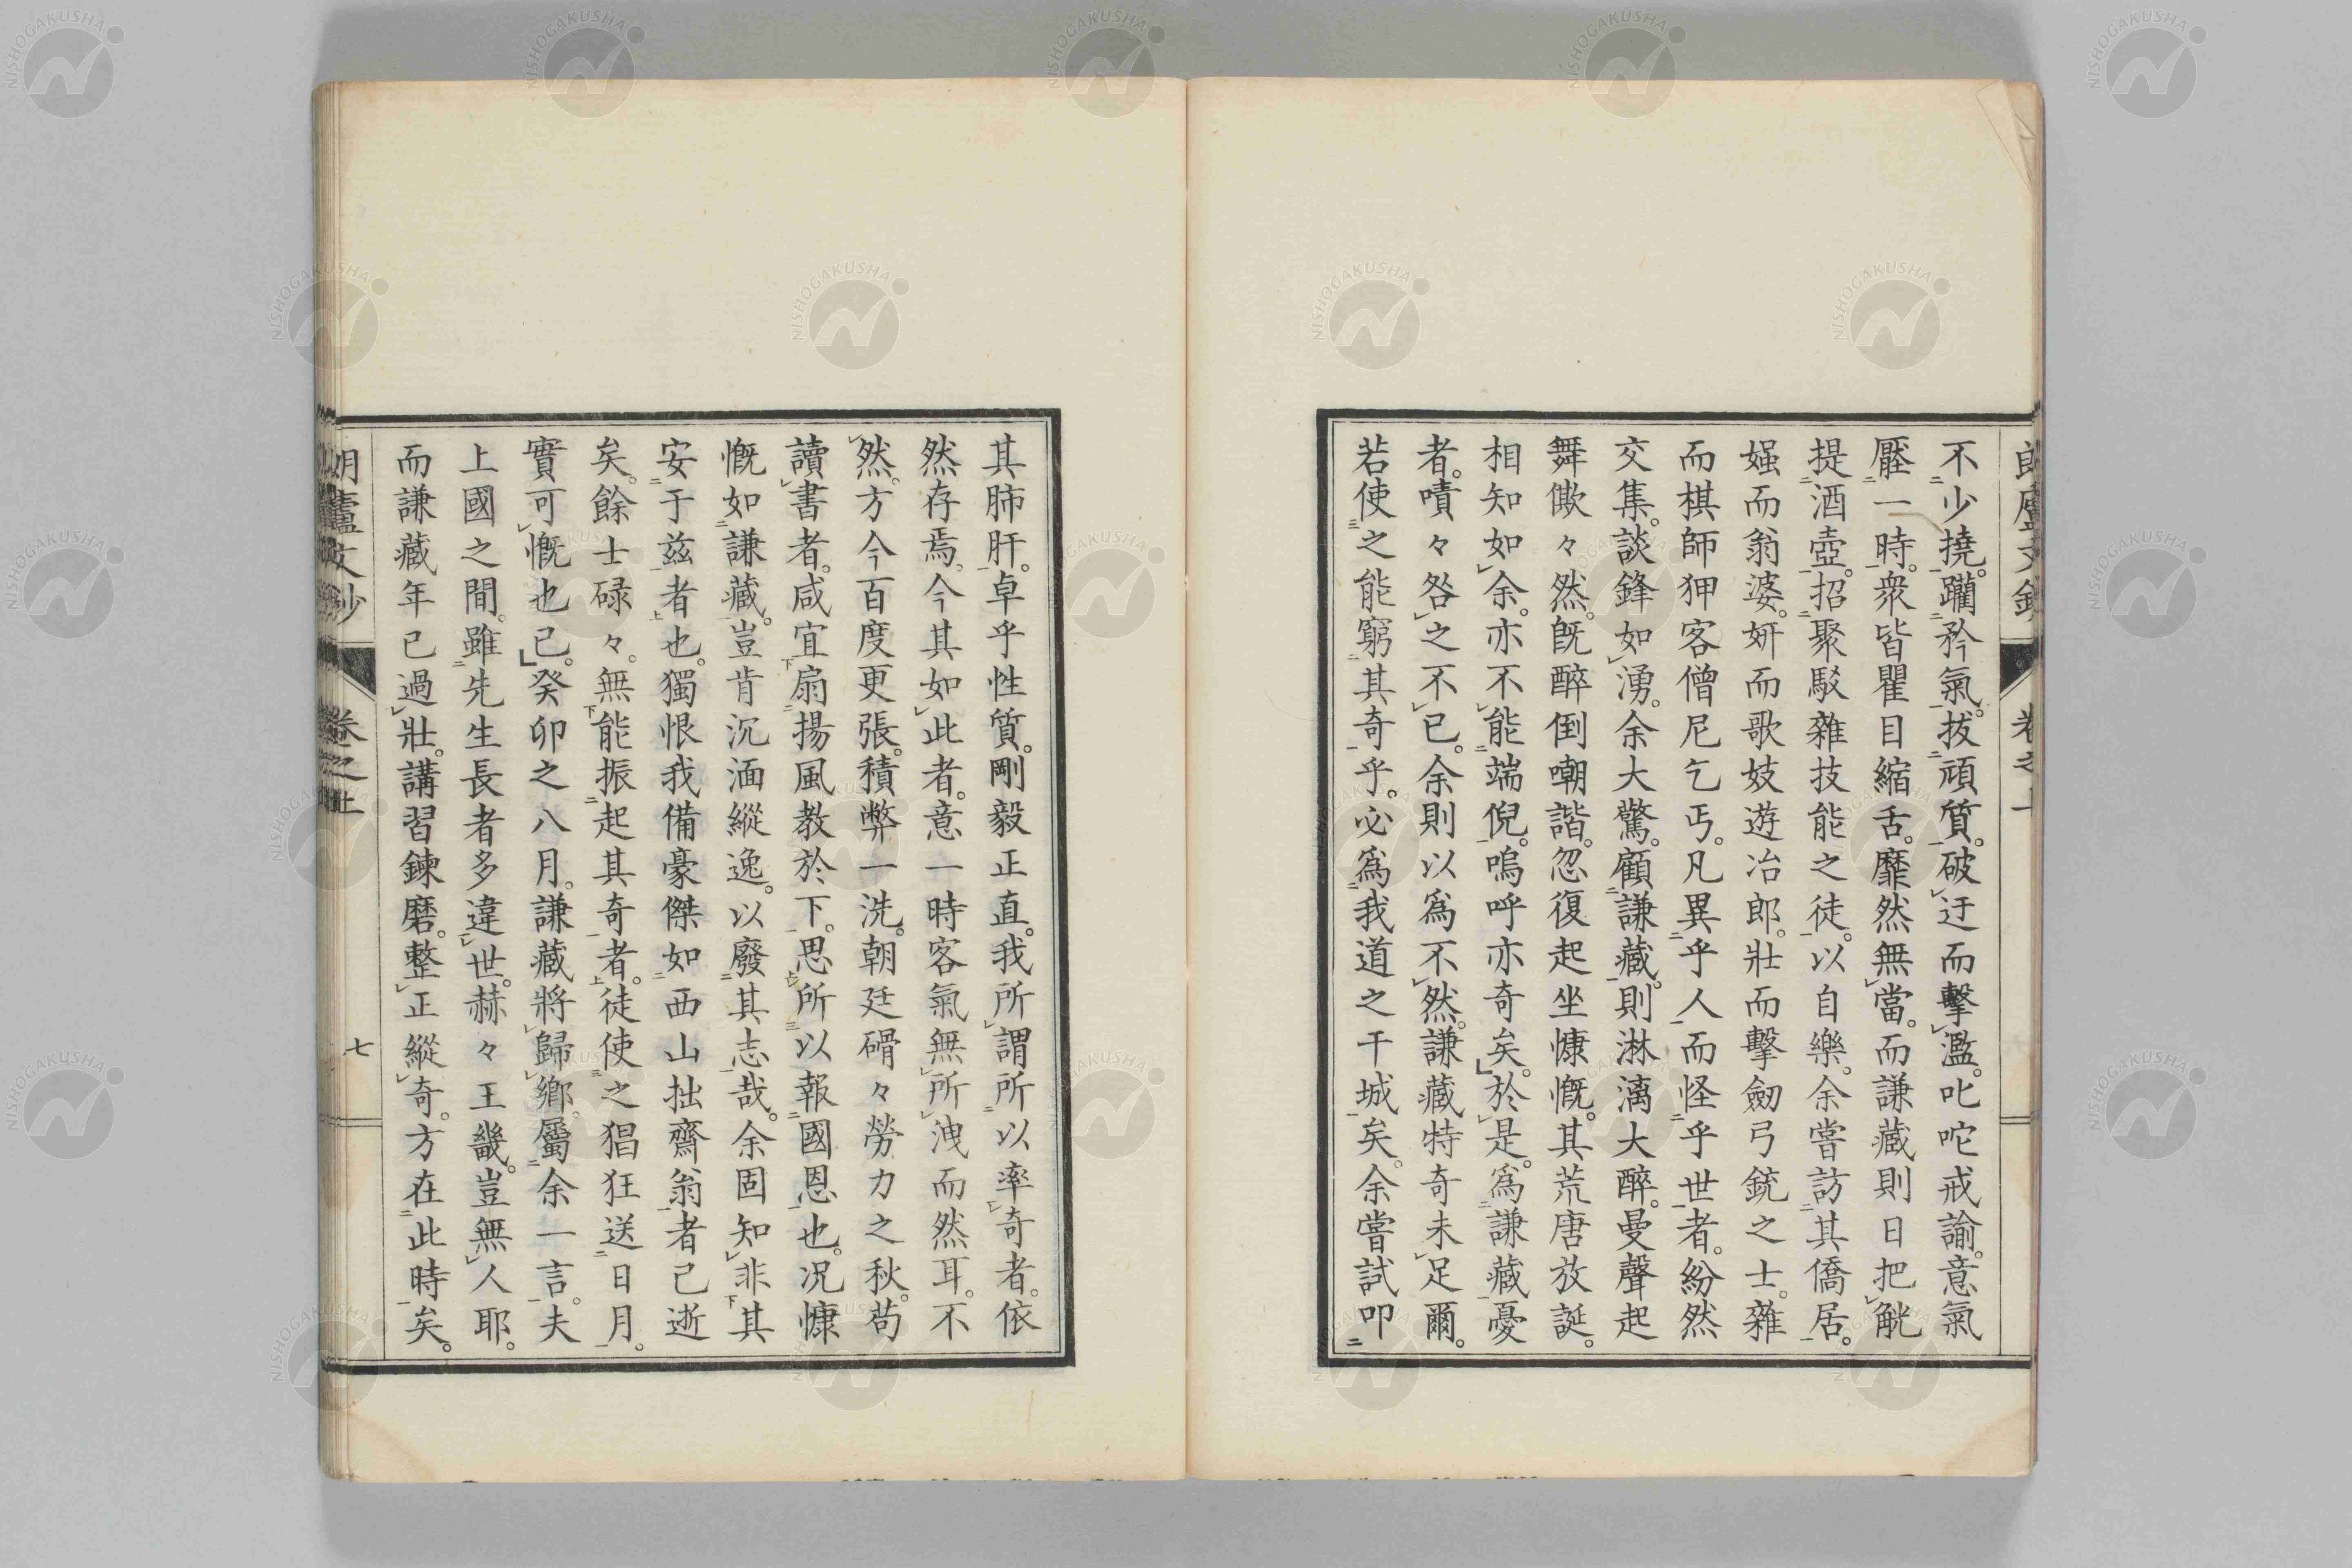 不少撓。躪矜氣。拔頑質。破迂而擊濫。叱咜戒諭。意氣
壓一時。衆皆瞿目縮舌。靡然無當。而謙藏則日把觥
提酒壺。招聚駁雜技能之徒。以自樂。余嘗訪其僑居。
媼而翁婆。妍而歌妓遊冶郎。壯而擊劒弓銃之士。雜
而棋師狎客僧尼乞丐。凡異乎人而怪乎世者。紛然
交集。談鋒如湧。余大驚。顧謙藏。則淋漓大醉。曼聲起
舞僛々然。既醉倒嘲諧。忽復起坐慷慨。其荒唐放誕。
相知如余。亦不能端倪。嗚呼亦奇矣。於是。爲謙藏憂
者。嘖々咎之不已。余則以爲不然。謙藏特奇未足爾。
若使之能窮其奇乎。必爲我道之干城矣。余嘗試叩
其肺肝。卓乎性質。剛毅正直。我所謂所以率奇者。依
然存焉。今其如此者。意一時客氣無所洩而然耳。不
然。方今百度更張。積弊一洗。朝廷磆々勞力之秋。苟
讀書者。咸宜扇揚風教於下。思所以報國恩也。况慷
慨如謙藏。豈肯沉湎縱逸。以廢其志哉。余固知非其
安于兹者也。獨恨我備豪傑如西山拙齋翁者已逝
矣。餘士碌々。無能振起其奇者。徒使之猖狂送日月。
實可慨也已。癸卯之八月。謙藏將歸鄉。屬余一言。夫
上國之間。雖先生長者多違世。赫々王畿。豈無人耶。
而謙藏年已過壯。講習鍊磨。整正縱奇。方在此時矣。
朗廬文鈔 卷之上 七
NISHOGAKUSHA